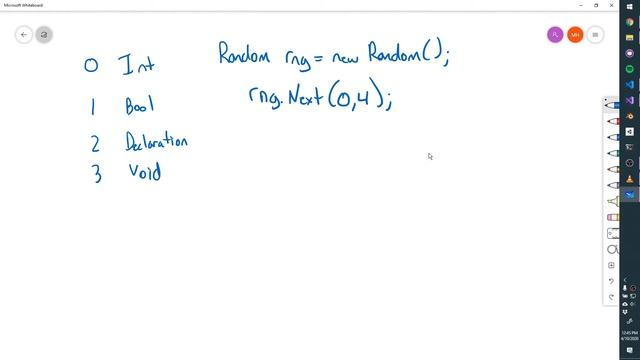 Microsoft Whiteboard
MH
0 Int
1 Bool
2 Declaration
3 Void
Random rng = new Random();
rng.Next(0,4);
12:45 PM
4/10/2020